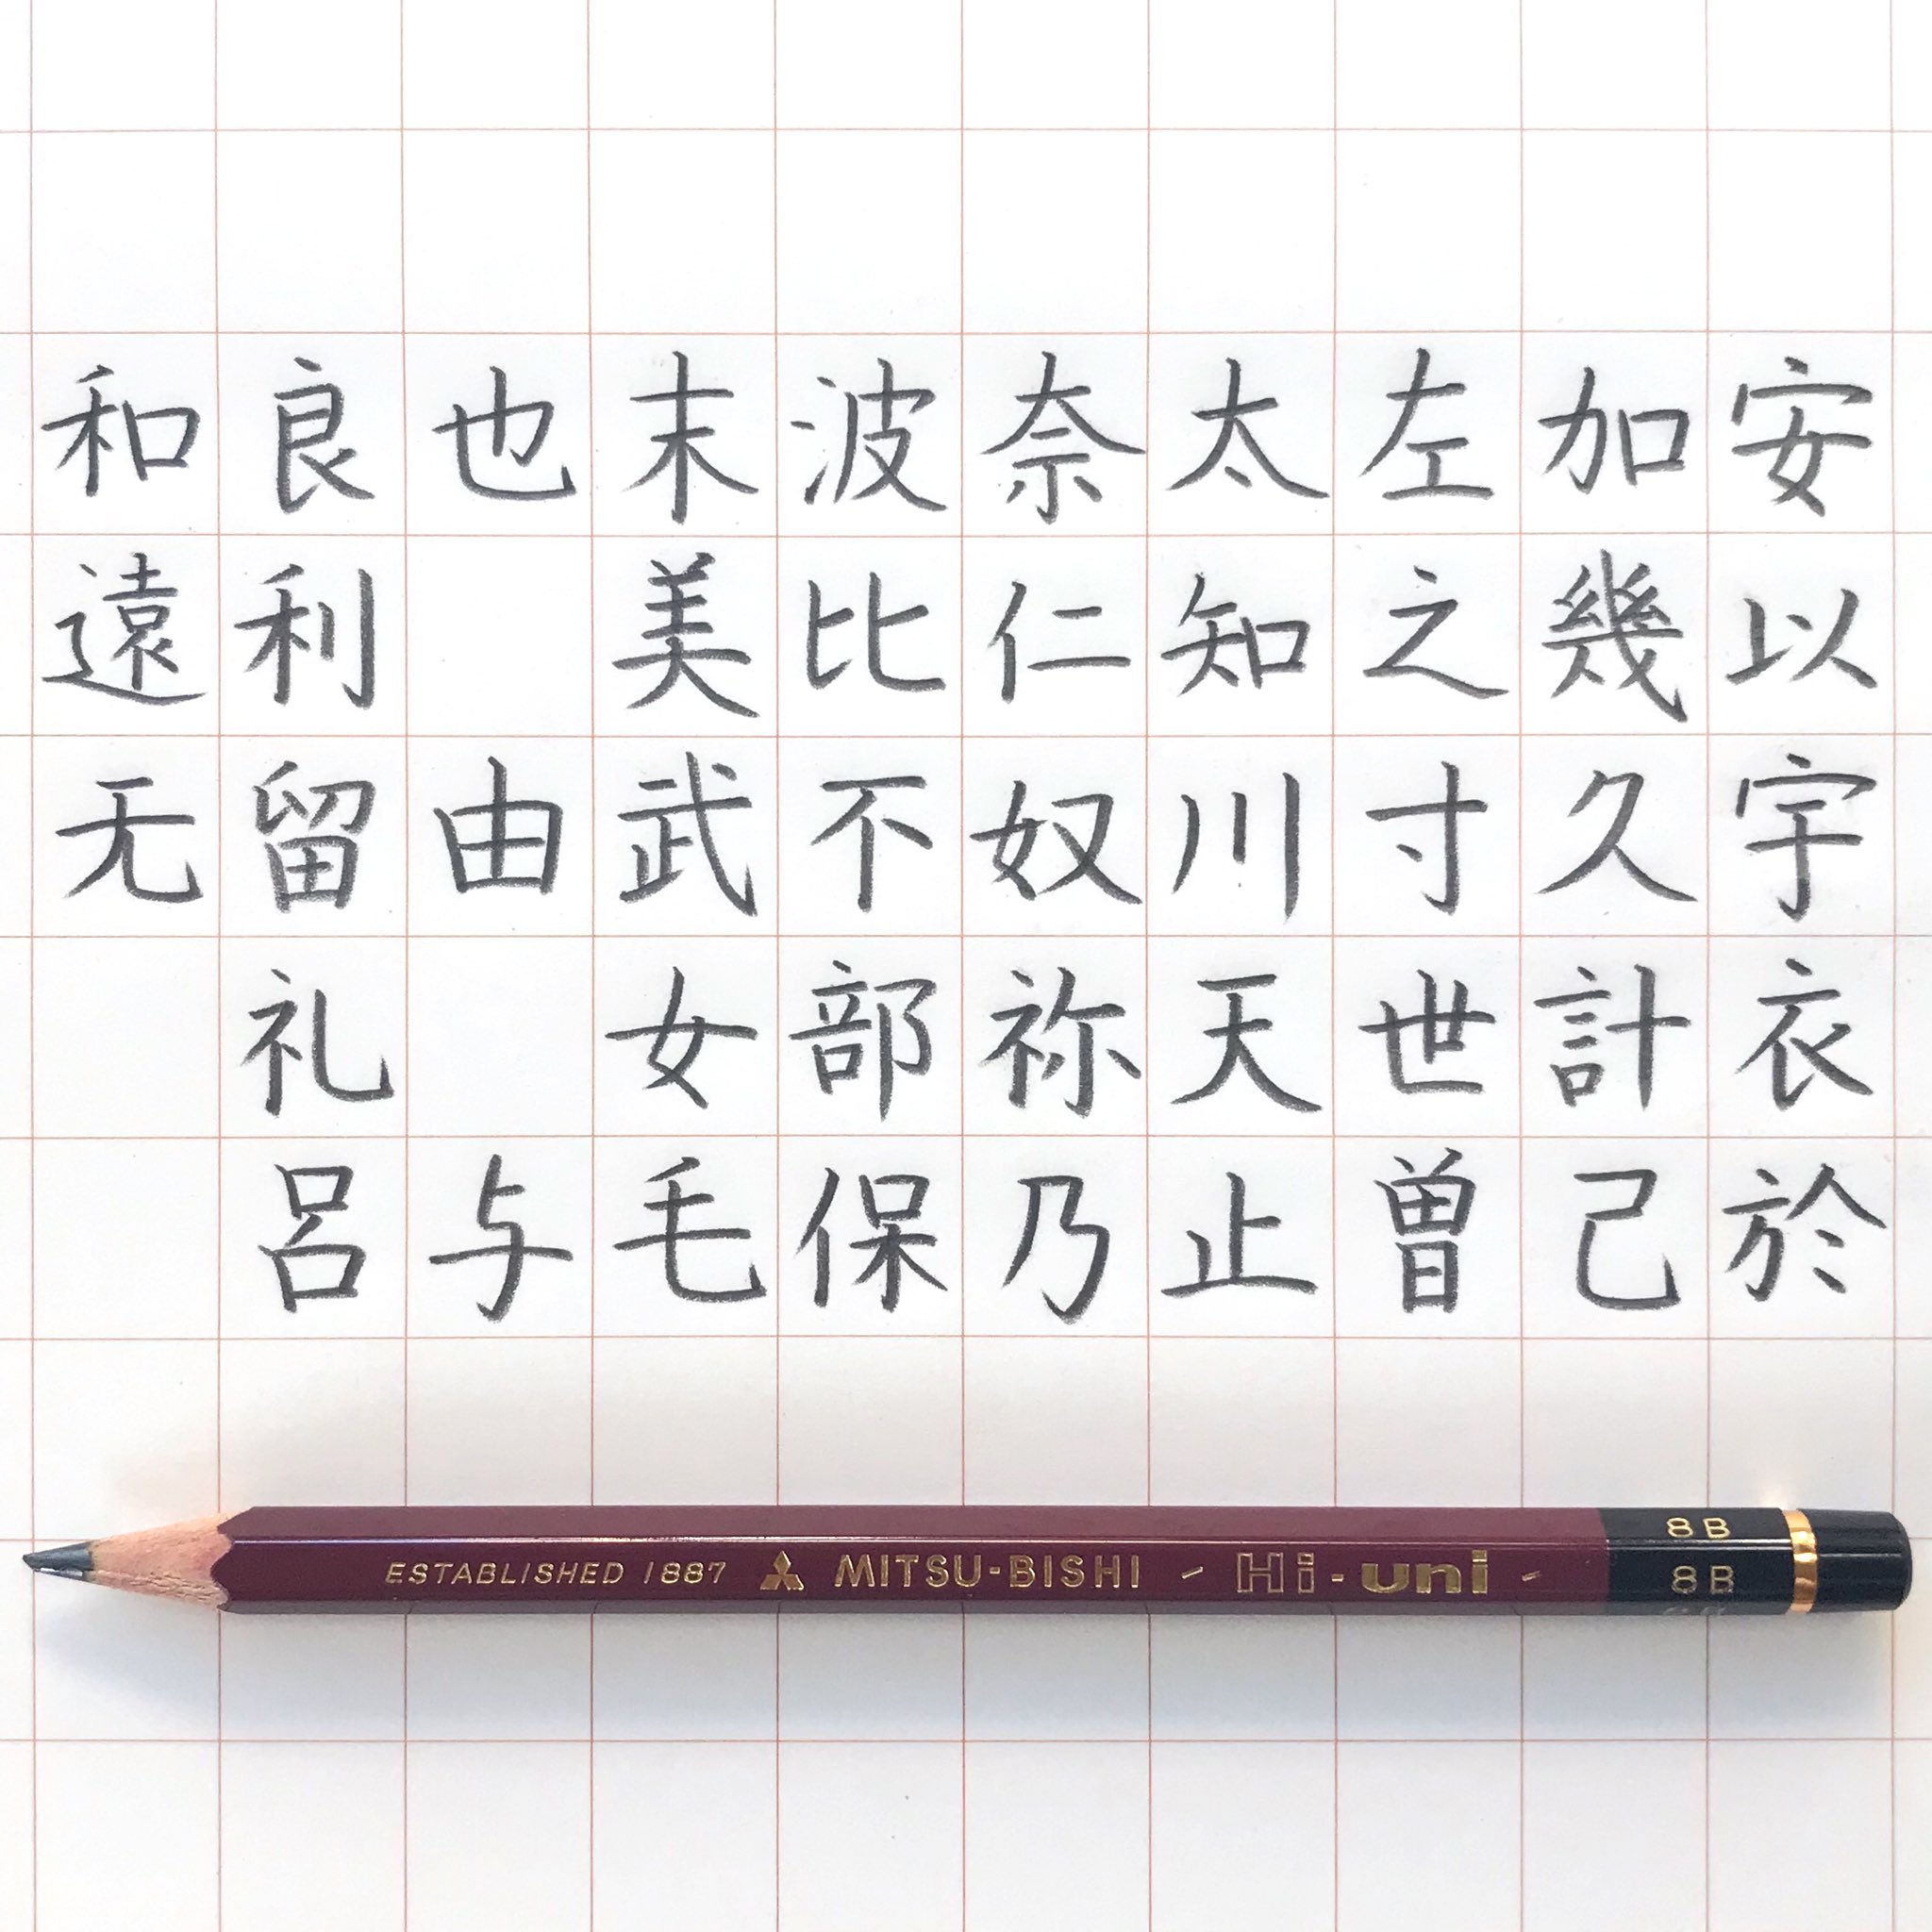 安以宇衣於
加幾久計己
左之寸世曽
太知川天止
奈仁奴祢乃
波比不部保
末美武女毛
也由与
良利留礼呂
和遠无
ESTABLISHED 1887 MITSU-BISHI - Hi-uni -
8B
8B